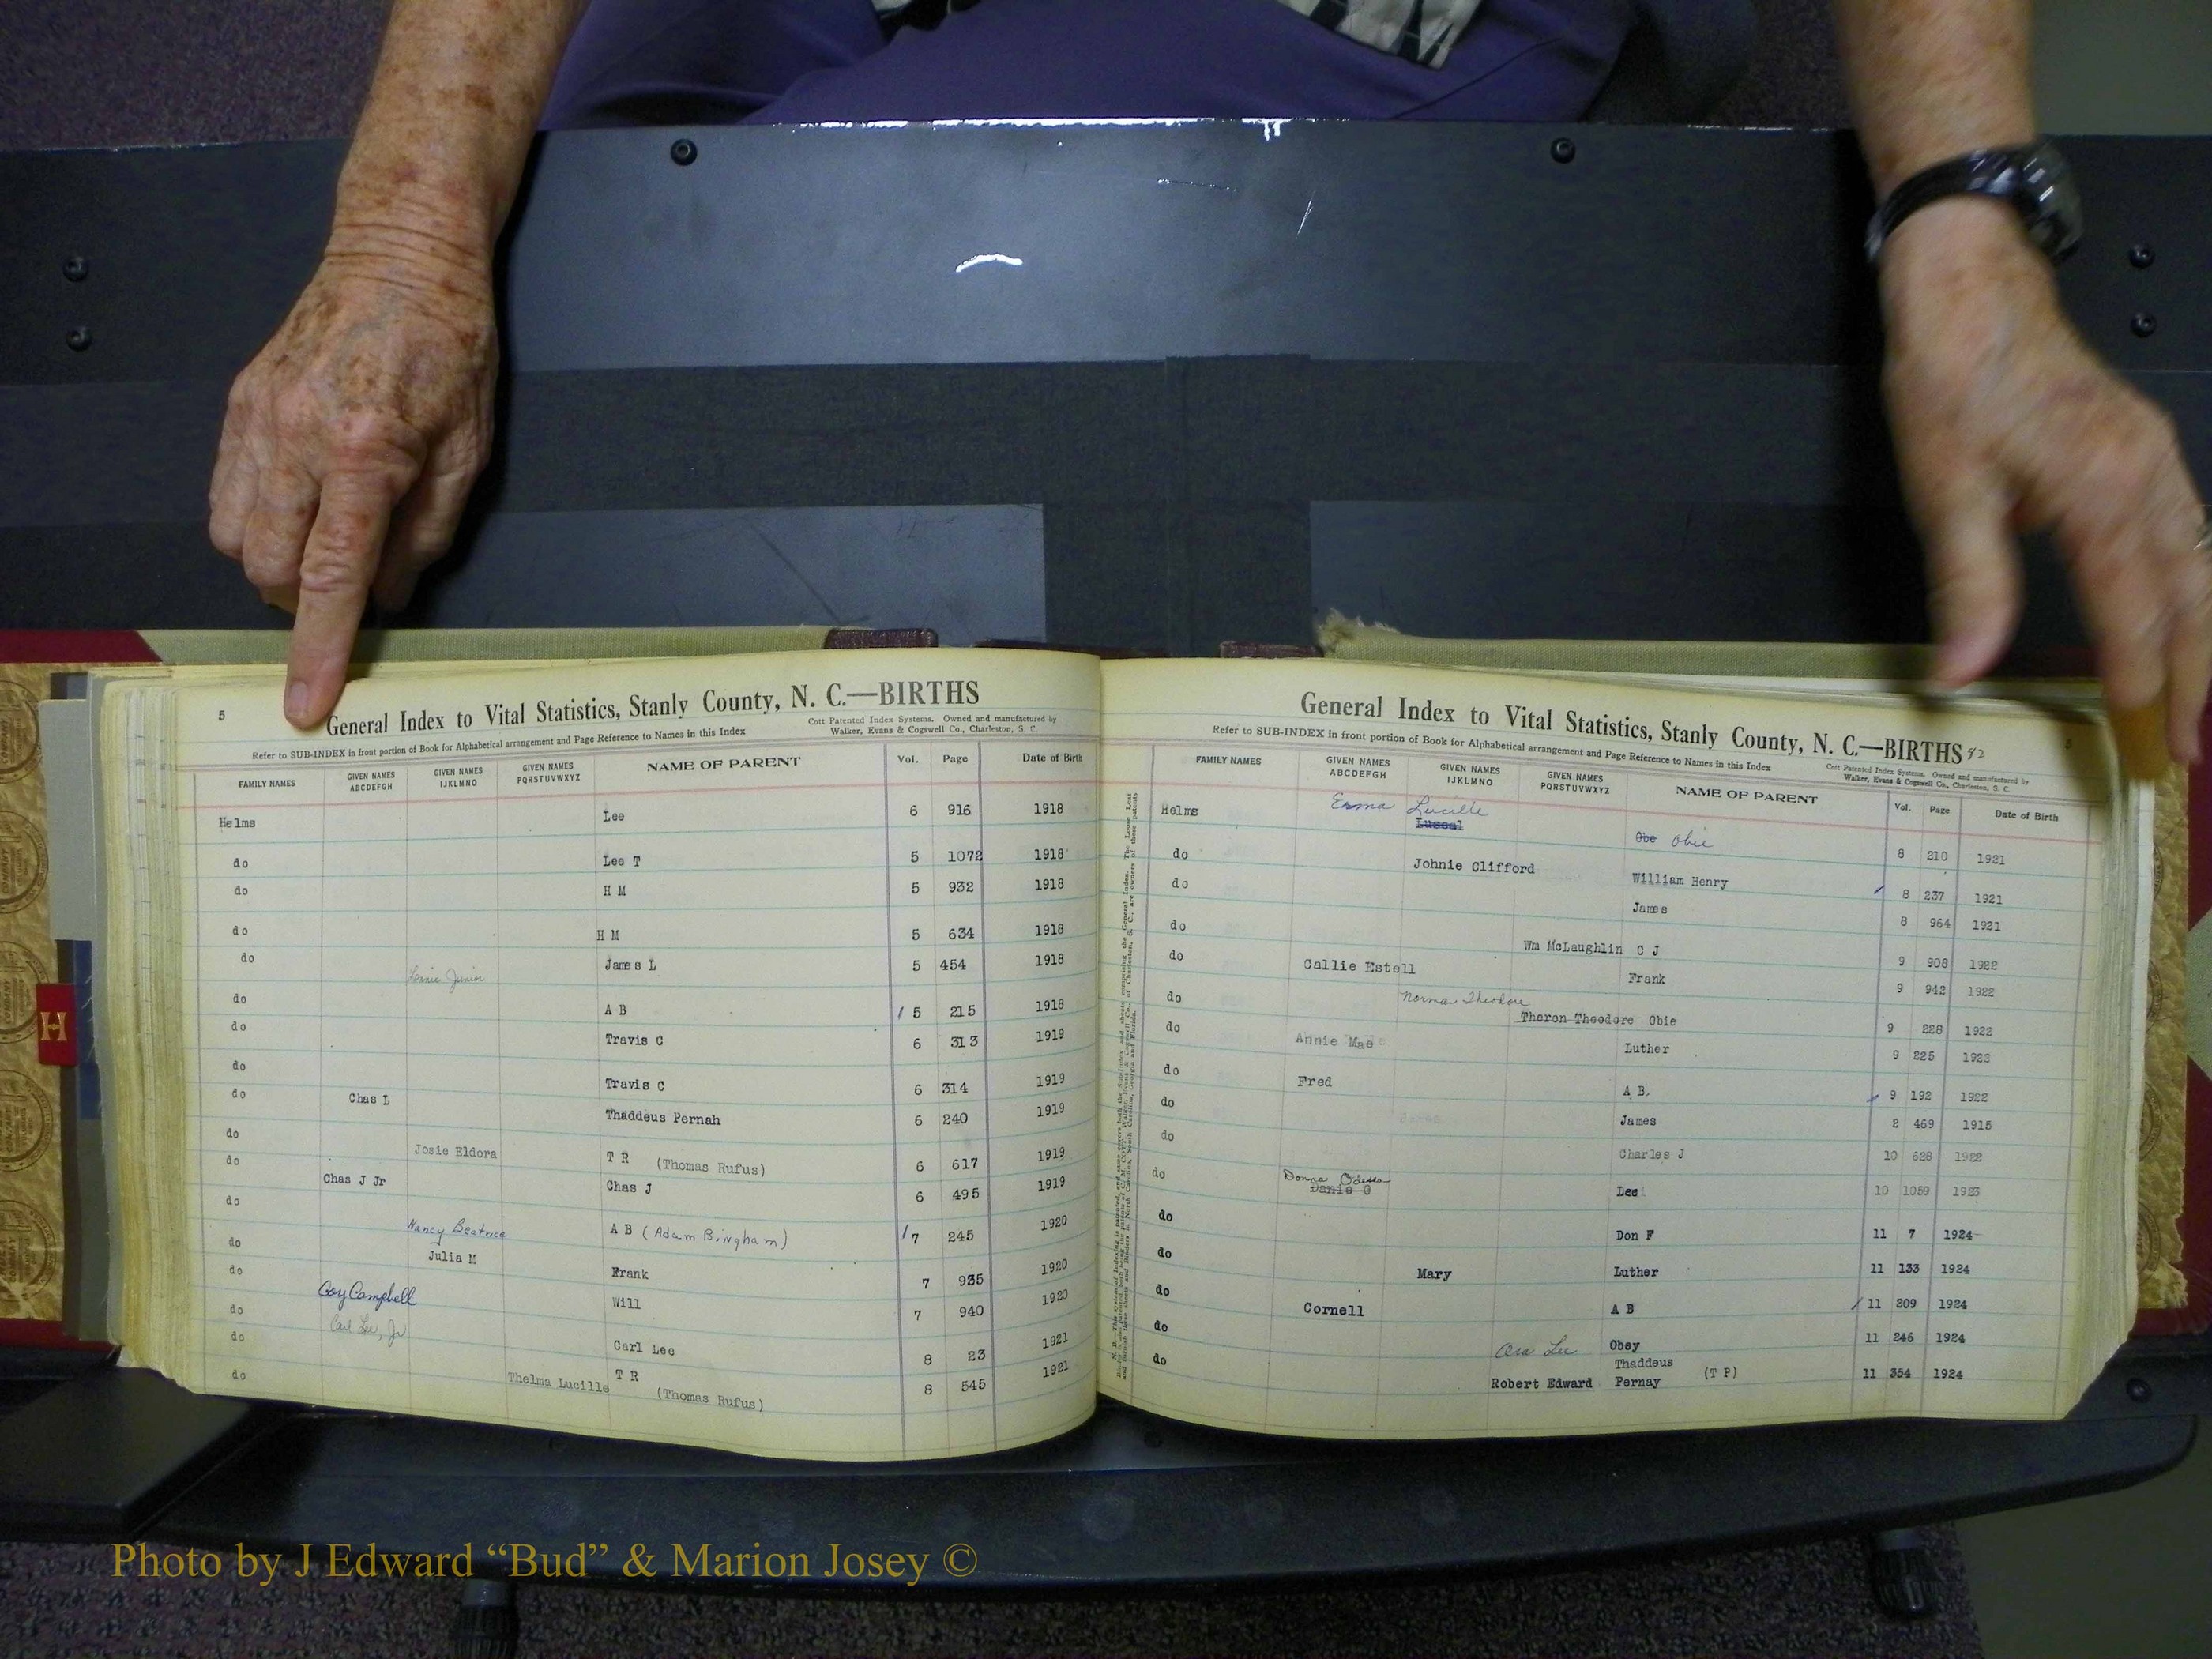 5
General Index to Vital Statistics, Stanly County, N. C.—BIRTHS
Refer to SUB-INDEX in front portion of Book for Alphabetical arrangement and Page Reference to Names in this Index
Cott Patented Index Systems. Owned and manufactured by
Walker, Evans & Cogswell Co., Charleston, S. C.
FAMILY NAMES GIVEN NAMES ABCDEFGH GIVEN NAMES IJKLMNO GIVEN NAMES PQRSTUVWXYZ NAME OF PARENT Vol. Page Date of Birth
Helms Lee 6 916 1918
do Lee T 5 1072 1918
do H M 5 932 1918
do H M 5 634 1918
do Junior James L 5 454 1918
do A B / 5 215 1918
do Travis C 6 313 1919
do Travis C 6 314 1919
do Chas L Thaddeus Pernah 6 240 1919
do Josie Eldora T R (Thomas Rufus) 6 617 1919
do Chas J Jr Chas J 6 495 1919
do Nancy Beatrice A B (Adam Bingham) / 7 245 1920
do Julia M Frank 7 935 1920
do Coy Campbell Will 7 940 1920
do Carl Lee, Jr Carl Lee 8 23 1921
do
do Thelma Lucille T R (Thomas Rufus) 8 545 1921
General Index to Vital Statistics, Stanly County, N. C.—BIRTHS 92
5
Refer to SUB-INDEX in front portion of Book for Alphabetical arrangement and Page Reference to Names in this Index
Cott Patented Index Systems. Owned and manufactured by
Walker, Evans & Cogswell Co., Charleston, S. C.
FAMILY NAMES GIVEN NAMES ABCDEFGH GIVEN NAMES IJKLMNO GIVEN NAMES PQRSTUVWXYZ NAME OF PARENT Vol. Page Date of Birth
Helms Erma Lucille Obe Obie 8 210 1921
do Johnie Clifford William Henry 8 237 1921
do James 8 964 1921
do Wm McLaughlin C J 9 908 1922
do Callie Estell Frank 9 942 1922
do Norman Theodore Theron Theodore Obie 9 228 1922
do Annie Mae Luther 9 225 1922
do Fred A B. 9 192 1922
do James 2 469 1915
do Charles J 10 628 1922
do Donna Odessa Danie O Lee 10 1059 1923
do Don F 11 7 1924
do Mary Luther 11 133 1924
do Cornell A B / 11 209 1924
do Ora Lee Obey 11 246 1924
do Robert Edward Thaddeus Pernay (T P) 11 354 1924
H
Photo by J Edward “Bud” & Marion Josey ©